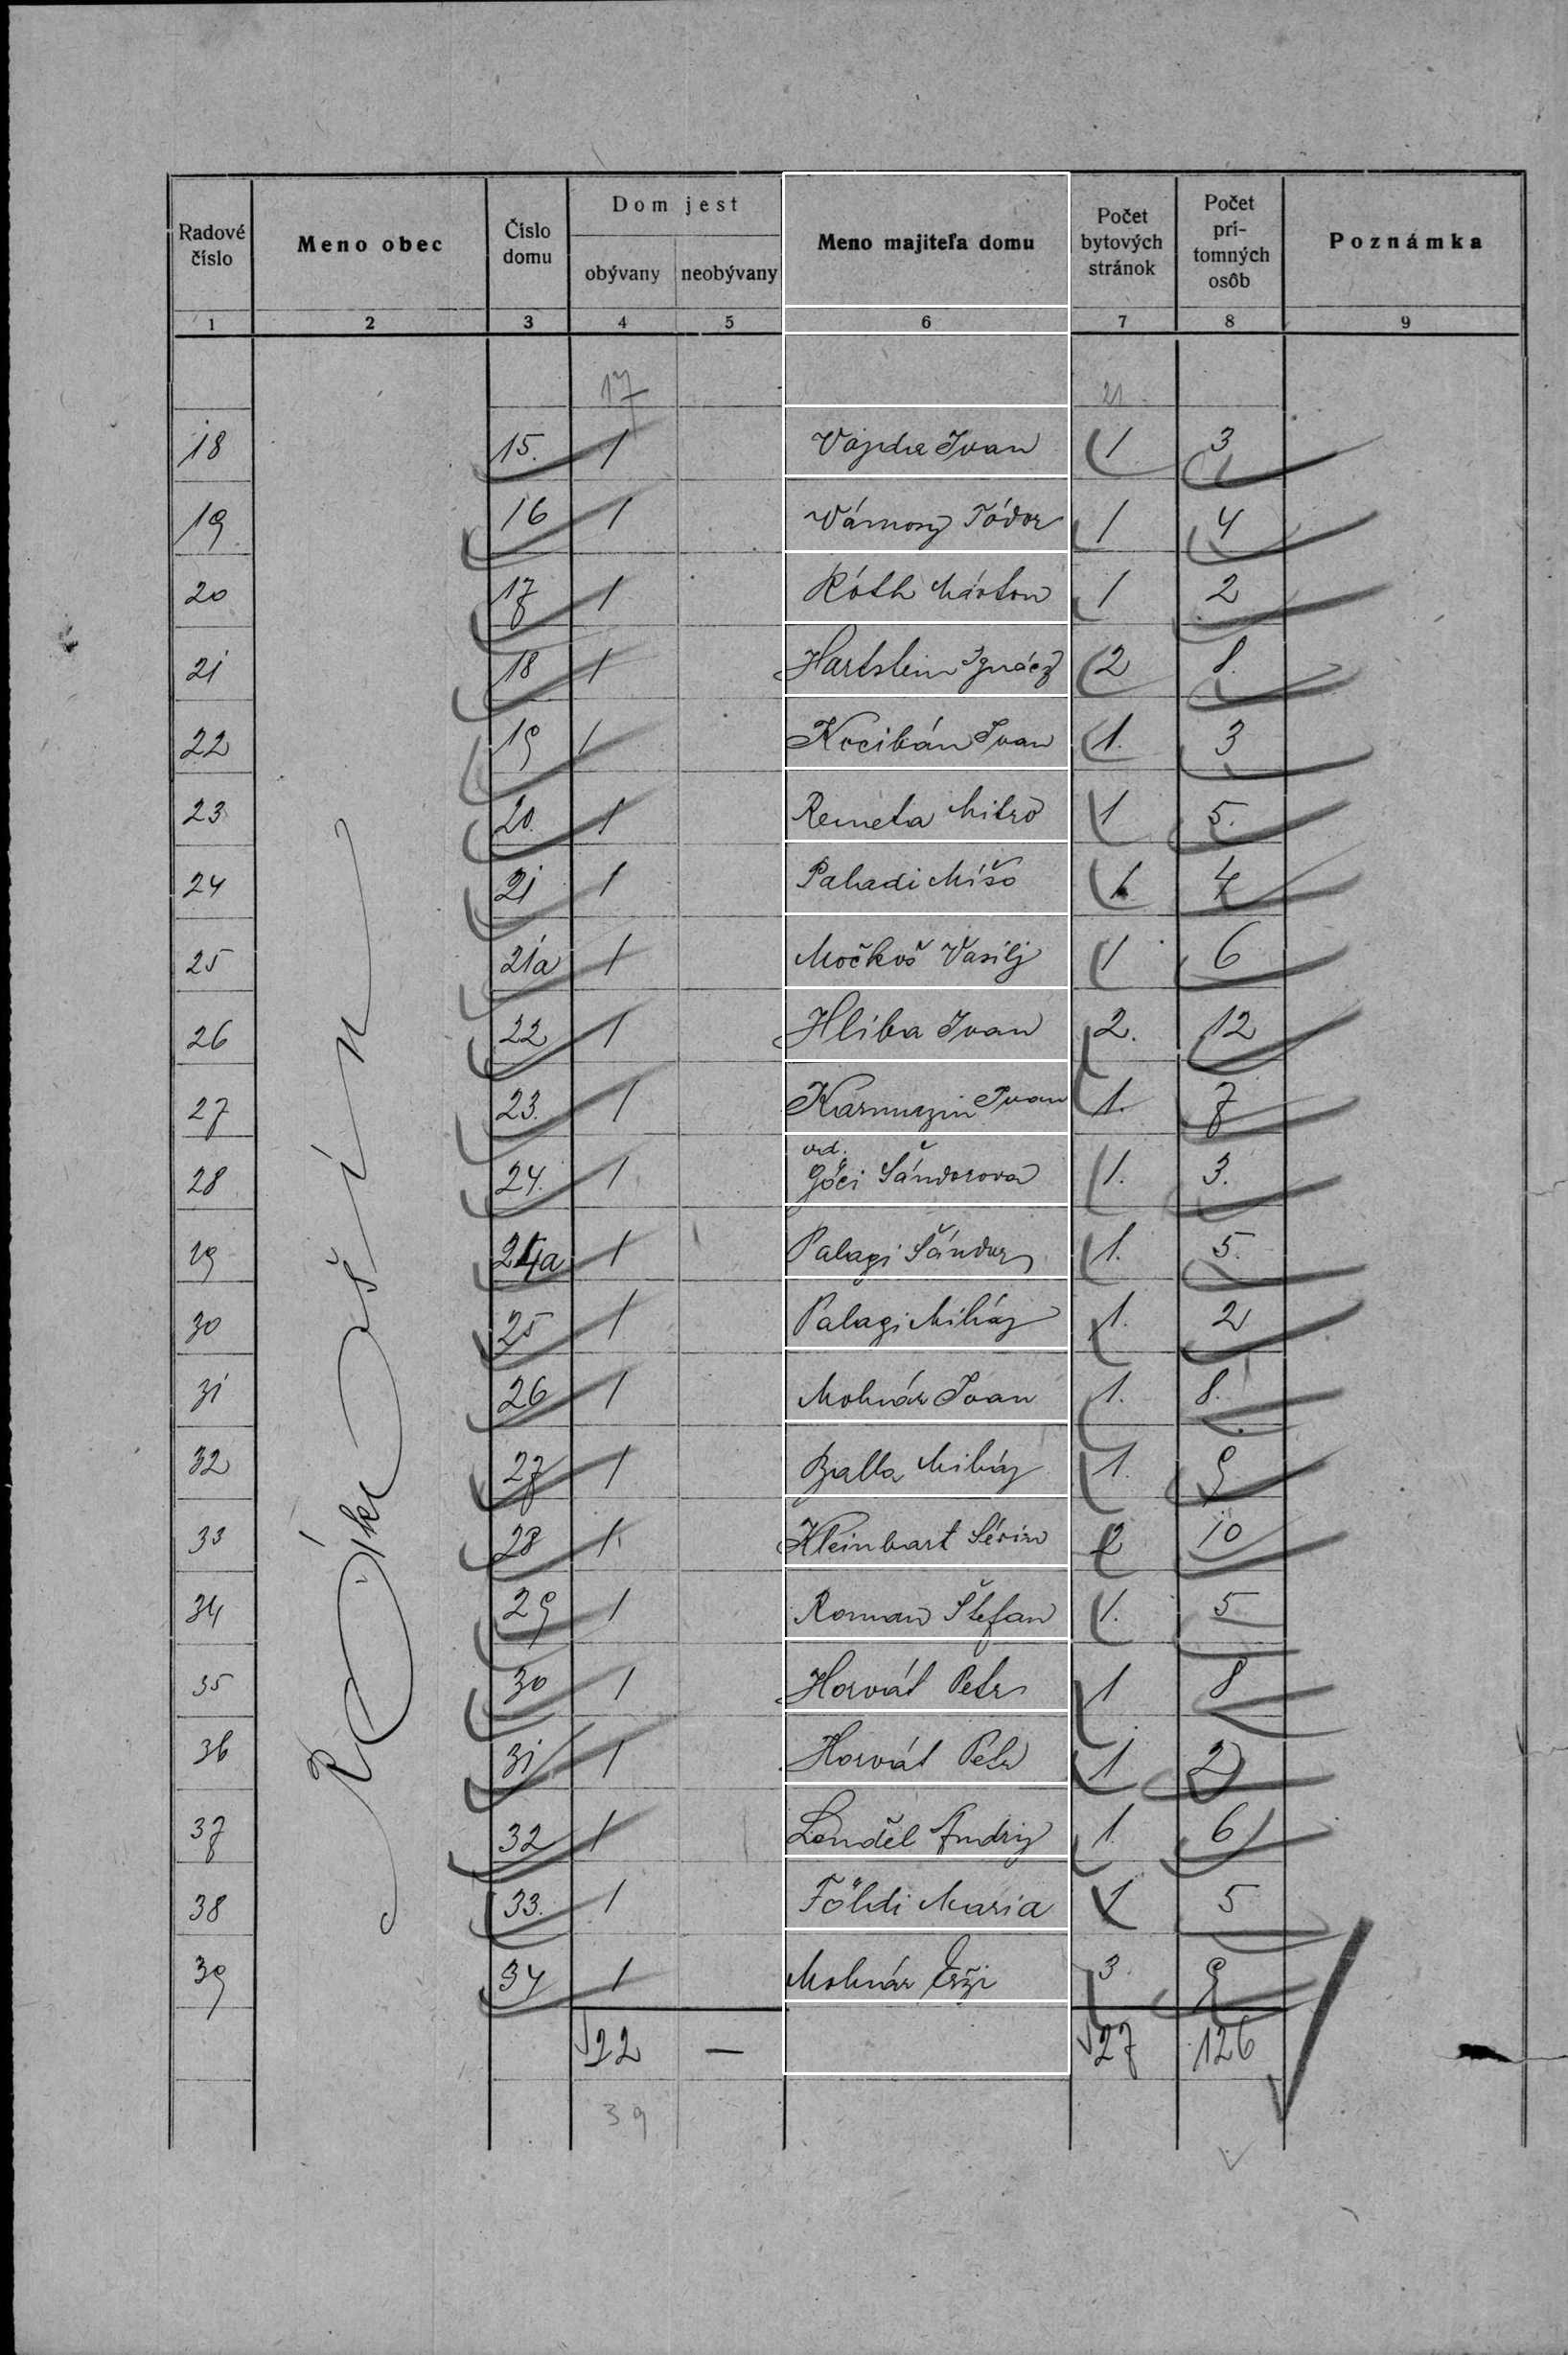 Radové číslo | Meno obec | Číslo domu | Dom jest | Meno majiteľa domu | Počet bytových stránok | Počet prí- tomných osôb | Poznámka
obývany | neobývany
1 | 2 | 3 | 4 | 5 | 6 | 7 | 8 | 9
17 | 21
18 | 15. | 1 | Vajda Ivan | 1 | 3
19 | 16 | 1 | Vámosy Tódor | 1 | 4
20 | 17 | 1 | Róth Márton | 1 | 2
21 | 18 | 1 | Hartstein Ignácz | 2 | 8.
22 | 19 | 1 | Kocibán Ivan | 1. | 3
23 | 20. | 1 | Remeta Mitro | 1 | 5.
24 | 21 | 1 | Pahadi Mišo | 1 | 4
25 | 21a | 1 | Močkoš Vasilj | 1 | 6
26 | 22 | 1 | Hliba Ivan | 2. | 12
27 | 23. | 1 | Karmuzin Ivan | 1. | 7
vd.
28 | 24. | 1 | Góci Šándorova | 1. | 3.
29 | 24a | 1 | Palagi Šándor | 1. | 5.
30 | 25 | 1 | Palagi Mihály | 1. | 2
31 | 26 | 1 | Molnár Ivan | 1. | 8.
32 | 27 | 1 | Balla Mihály | 1. | 9
33 | 28 | 1. | Kleinbart | 2 | 10
34 | 29 | 1 | Roman Štefan | 1. | 5
35 | 30 | 1 | Horvát Petr | 1 | 8
36 | 31 | 1 | Horvát Petr | 1 | 2
37 | 32 | 1 | Lenděl Andrij | 1. | 6
38 | 33. | 1 | Földi Maria | 1 | 5
39 | 34 | 1 | Molnár Erži | 3. | 9
22 | — | 27 | 126
39
Rákošín